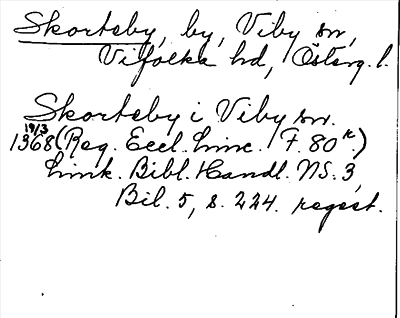 Skortsby, by, Viby sn,
Vifolka hd, Österg. l.
Skortsby i Viby sn.
19/3
1368 (Reg. Eccl. Linc. F. 80 r.)
Link. Bibl. Handl. NS. 3,
Bil. 5, s. 224. regest.